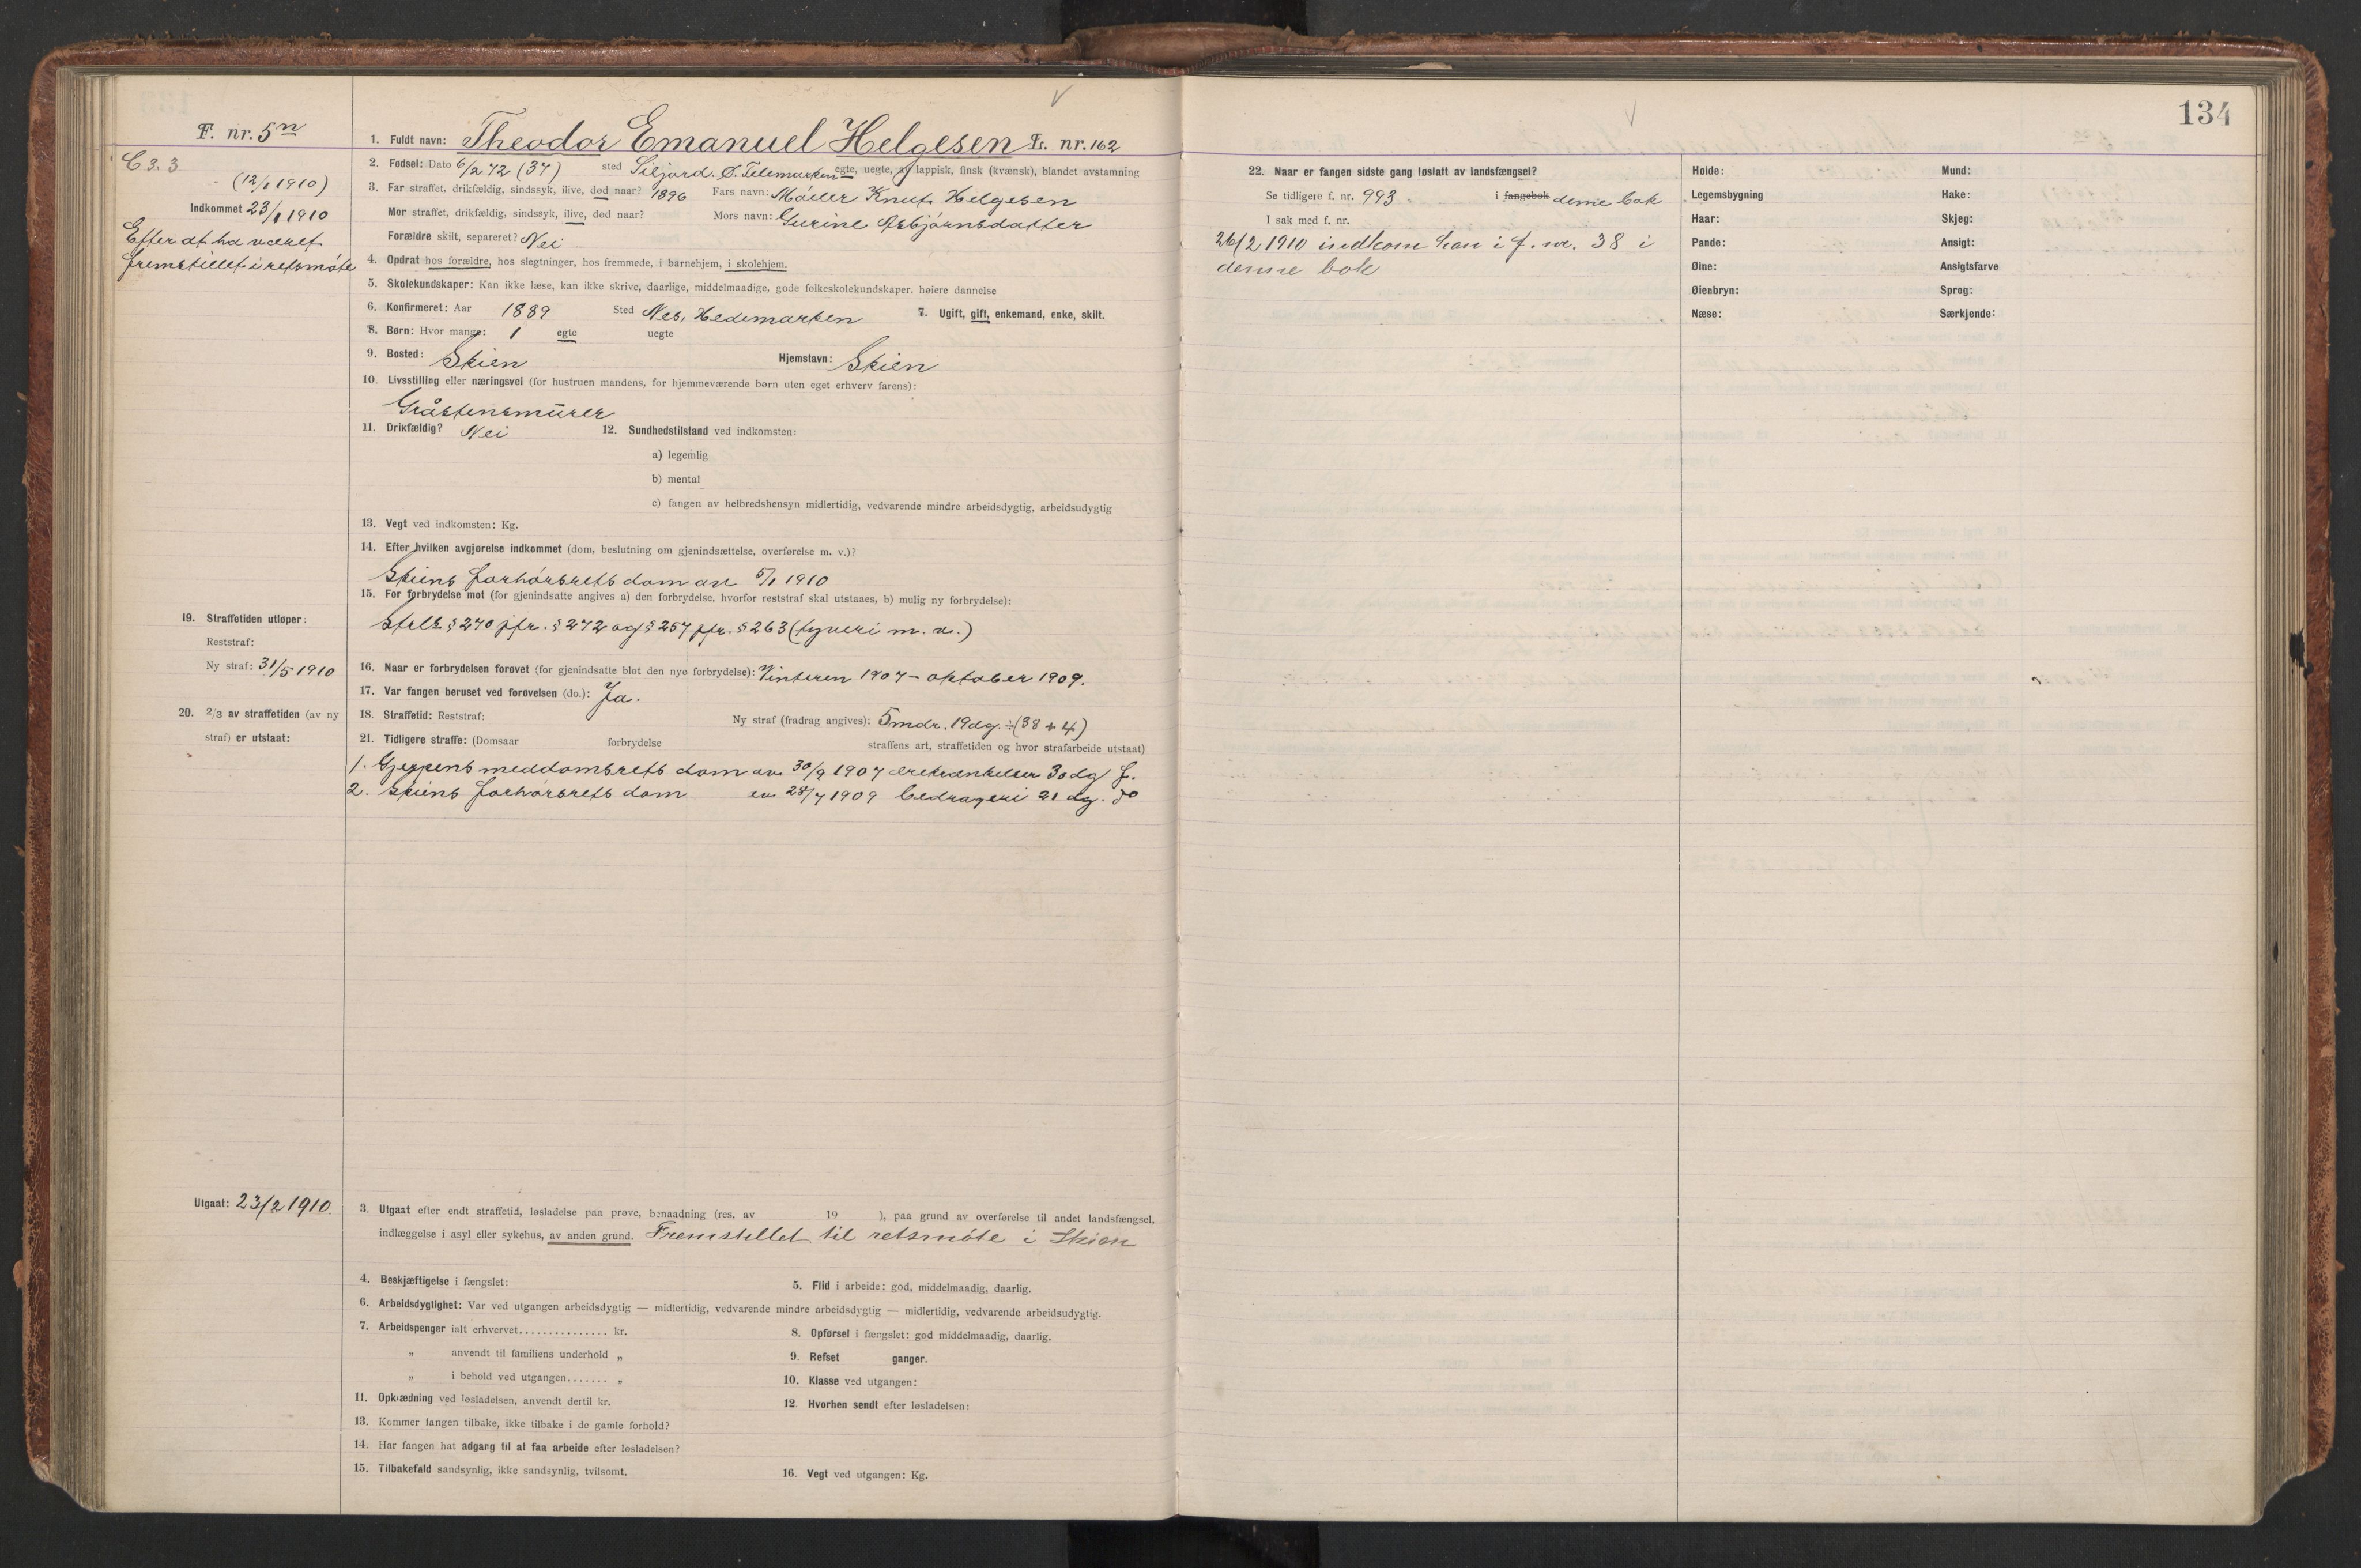 134
F. nr. 5ⁿ
C 3. 3
(12/1 1910)
Indkommet 23/1 1910
Efter at ha været
fremstillet i retsmøte
1. Fuldt navn: Theodor Emanuel Helgesen L. nr. 162
2. Fødsel: Dato 6/2 72 (37) sted Siljord. Ø. Telemarken egte, uegte, av lappisk, finsk (kvænsk), blandet avstamning
3. Far straffet, drikfældig, sindssyk, ilive, død naar? 1896 Fars navn: Møller Knut Helgesen
Mor straffet, drikfældig, sindssyk, ilive, død naar? Mors navn: Gurine Asbjørnsdatter
Forældre skilt, separeret? Nei
4. Opdrat hos forældre, hos slegtninger, hos fremmede, i barnehjem, i skolehjem.
5. Skolekundskaper: Kan ikke læse, kan ikke skrive, daarlige, middelmaadige, gode folkeskolekundskaper. høiere dannelse
6. Konfirmeret: Aar 1889 Sted Nes, Hedemarken 7. Ugift, gift, enkemand, enke, skilt.
8. Børn: Hvor mange: 1 egte uegte
9. Bosted: Skien Hjemstavn: Skien
10. Livsstilling eller næringsvei (for hustruen mandens, for hjemmeværende børn uten eget erhverv farens):
Gråstensmurer
11. Drikfældig? Nei 12. Sundhedstilstand ved indkomsten:
a) legemlig
b) mental
c) fangen av helbredshensyn midlertidig, vedvarende mindre arbeidsdygtig, arbeidsudygtig
13. Vegt ved indkomsten: Kg.
14. Efter hvilken avgjørelse indkommet (dom, beslutning om gjenindsættelse, overførelse m. v.)?
Skiens forhørsrets dom av 5/1 1910
15. For forbrydelse mot (for gjenindsatte angives a) den forbrydelse, hvorfor reststraf skal utstaaes, b) mulig ny forbrydelse):
Strls § 270 jfr. § 272 og § 257 jfr. § 263 (tyveri m. v.)
16. Naar er forbrydelsen forøvet (for gjenindsatte blot den nye forbrydelse): Vinteren 1907 - oktober 1909.
17. Var fangen beruset ved forøvelsen (do.): Ja.
18. Straffetid: Reststraf: Ny straf (fradrag angives): 5 mdr. 19 dg. ÷ (38 + 4)
19. Straffetiden utløper:
Reststraf:
Ny straf: 31/5 1910
20. 2/3 av straffetiden (av ny
straf) er utstaat:
21. Tidligere straffe: (Domsaar forbrydelse straffens art, straffetiden og hvor strafarbeide utstaat)
1. Gjerpens meddomsrets dom av 30/9 1907 ærekrænkelser 30 dg f.
2. Skiens forhørsrets dom av 28/7 1909 bedrageri 21 dg. do
Utgaat: 23/2 1910.
3. Utgaat efter endt straffetid, løsladelse paa prøve, benaadning (res. av 19 ), paa grund av overførelse til andet landsfængsel,
indlæggelse i asyl eller sykehus, av anden grund. Fremstillet til retsmøte i Skien
4. Beskjæftigelse i fængslet: 5. Flid i arbeide: god, middelmaadig, daarlig.
6. Arbeidsdygtighet: Var ved utgangen arbeidsdygtig — midlertidig, vedvarende mindre arbeidsdygtig — midlertidig, vedvarende arbeidsudygtig.
7. Arbeidspenger ialt erhvervet............... kr. 8. Opførsel i fængslet: god middelmaadig, daarlig.
„ anvendt til familiens underhold „ 9. Refset ganger.
„ i behold ved utgangen....... „ 10. Klasse ved utgangen:
11. Opklædning ved løsladelsen, anvendt dertil kr. 12. Hvorhen sendt efter løsladelsen:
13. Kommer fangen tilbake, ikke tilbake i de gamle forhold?
14. Har fangen hat adgang til at faa arbeide efter løsladelsen?
15. Tilbakefald sandsynlig, ikke sandsynlig, tvilsomt. 16. Vegt ved utgangen: Kg.
22. Naar er fangen sidste gang løslatt av landsfængsel?
Se tidligere f. nr. 993 i fangebok denne bok
I sak med f. nr.
26/2 1910 indkom han i f. nr. 38 i
denne bok
Høide: Mund:
Legemsbygning Hake:
Haar: Skjeg:
Pande: Ansigt:
Øine: Ansigtsfarve
Øienbryn: Sprog:
Næse: Særkjende: